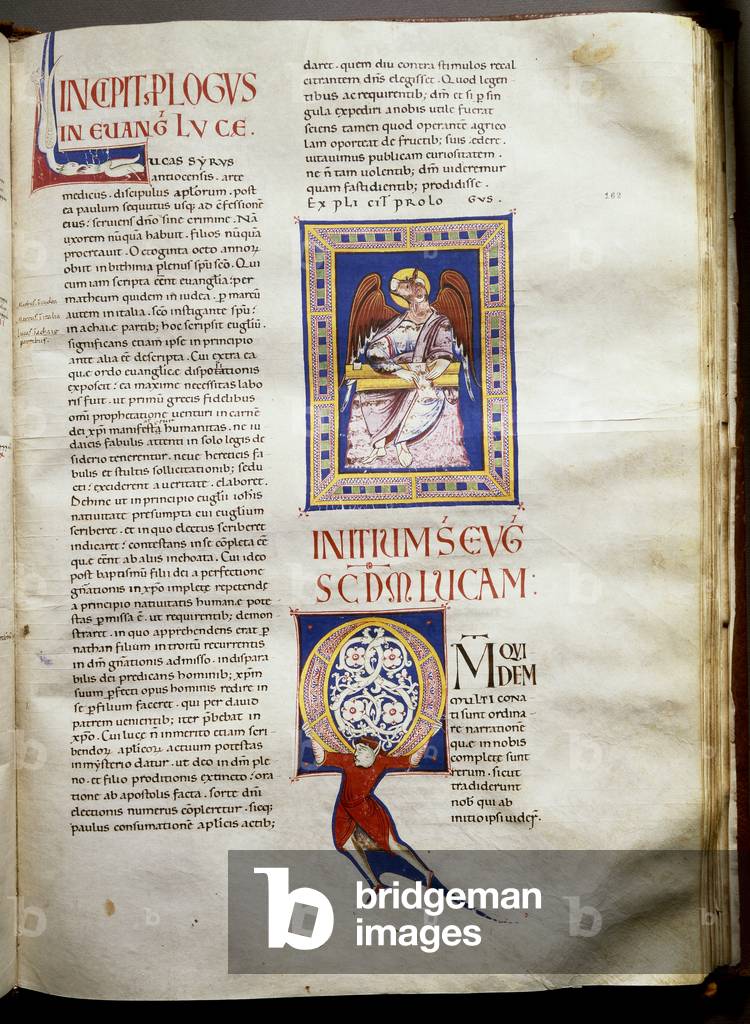 INCIPIT PLOGVS
IN EVANG LVCE.
LUCAS SYRVS
antiocensis. arte
medicus. discipulus aplorum. post
ea paulum sequutus usq; ad cfessione
eius: serviens dno sine crimine. Na
uxorem nuqua habuit. filios nuqua
procreauit. Octoginta octo annorum
obiit in bithinia plenus spu sco. Qui
cum iam scripta eent euanglia: per
matheum quidem in iudea. p marcu
autem in italia. sco instigante spu:
in achaie partib; hoc scripsit eugliu.
significans etiam ipse in principio
ante alia ee descripta. Cui extra ea
que ordo euanglice dispositionis
exposcit: ea maxime necessitas labo
ris fuit. ut primu grecis fidelibus
omi prophetatione uenturi in carne
dei xpi manifesta humanitas. ne iu
daicis fabulis attenti in solo legis de
siderio tenerentur. neue hereticis fa
bulis et stultis sollicitationib; sedu
cti: exciderent a ueritate. elaboret.
Dehinc ut in principio euglii iohis
natiuitate presumpta cui euglium
scriberet. et in quo electus scriberet
indicaret: contestans in se completa ee
que eent ab aliis inchoata. Cui ideo
post baptismu filii dei a perfectione
gnationis in xpo implete repetende
a principio natiuitatis humane pote
stas pmissa e. ut requirentib; demon
straret. in quo apprehendens erat p
nathan filium introitu recurrentis
in dm gnationis admisso. indispara
bilis dei predicans hominib; xpm
suum pfecti opus hominis redire in
se p filium faceret. qui per dauid
patrem uenientib; iter pbebat in
xpo. Cui luce n inmerito etiam scri
bendor aplicor actuum potestas
in mysterio datur. ut deo in dm ple
no. et filio proditionis extincto: ora
tione ab apostolis facta. sorte dni
electionis numerus copleretur. sicq;
paulus consumatione aplicis actib;
daret. quem diu contra stimulos recal
citrantem dns elegisset. Quod legen
tibus ac requirentib; dm et si p sin
gula expediri a nobis utile fuerat
sciens tamen quod operante agrico
lam oporteat de fructib; suis edere.
uitauimus publicam curiositatem.
ne n tam uolentib; dm uideremur
quam fastidientib; prodidisse.
EXPLICIT PROLOGVS.
162
INITIUM S EVG
SCDM LUCAM:
QVO
NIAM QVI
DEM
MULTI CONA
ti sunt ordina
re narratione
que in nobis
complete sunt
rerum. sicut
tradiderunt
nob qui ab
initio ipsi uider.
b bridgeman
images